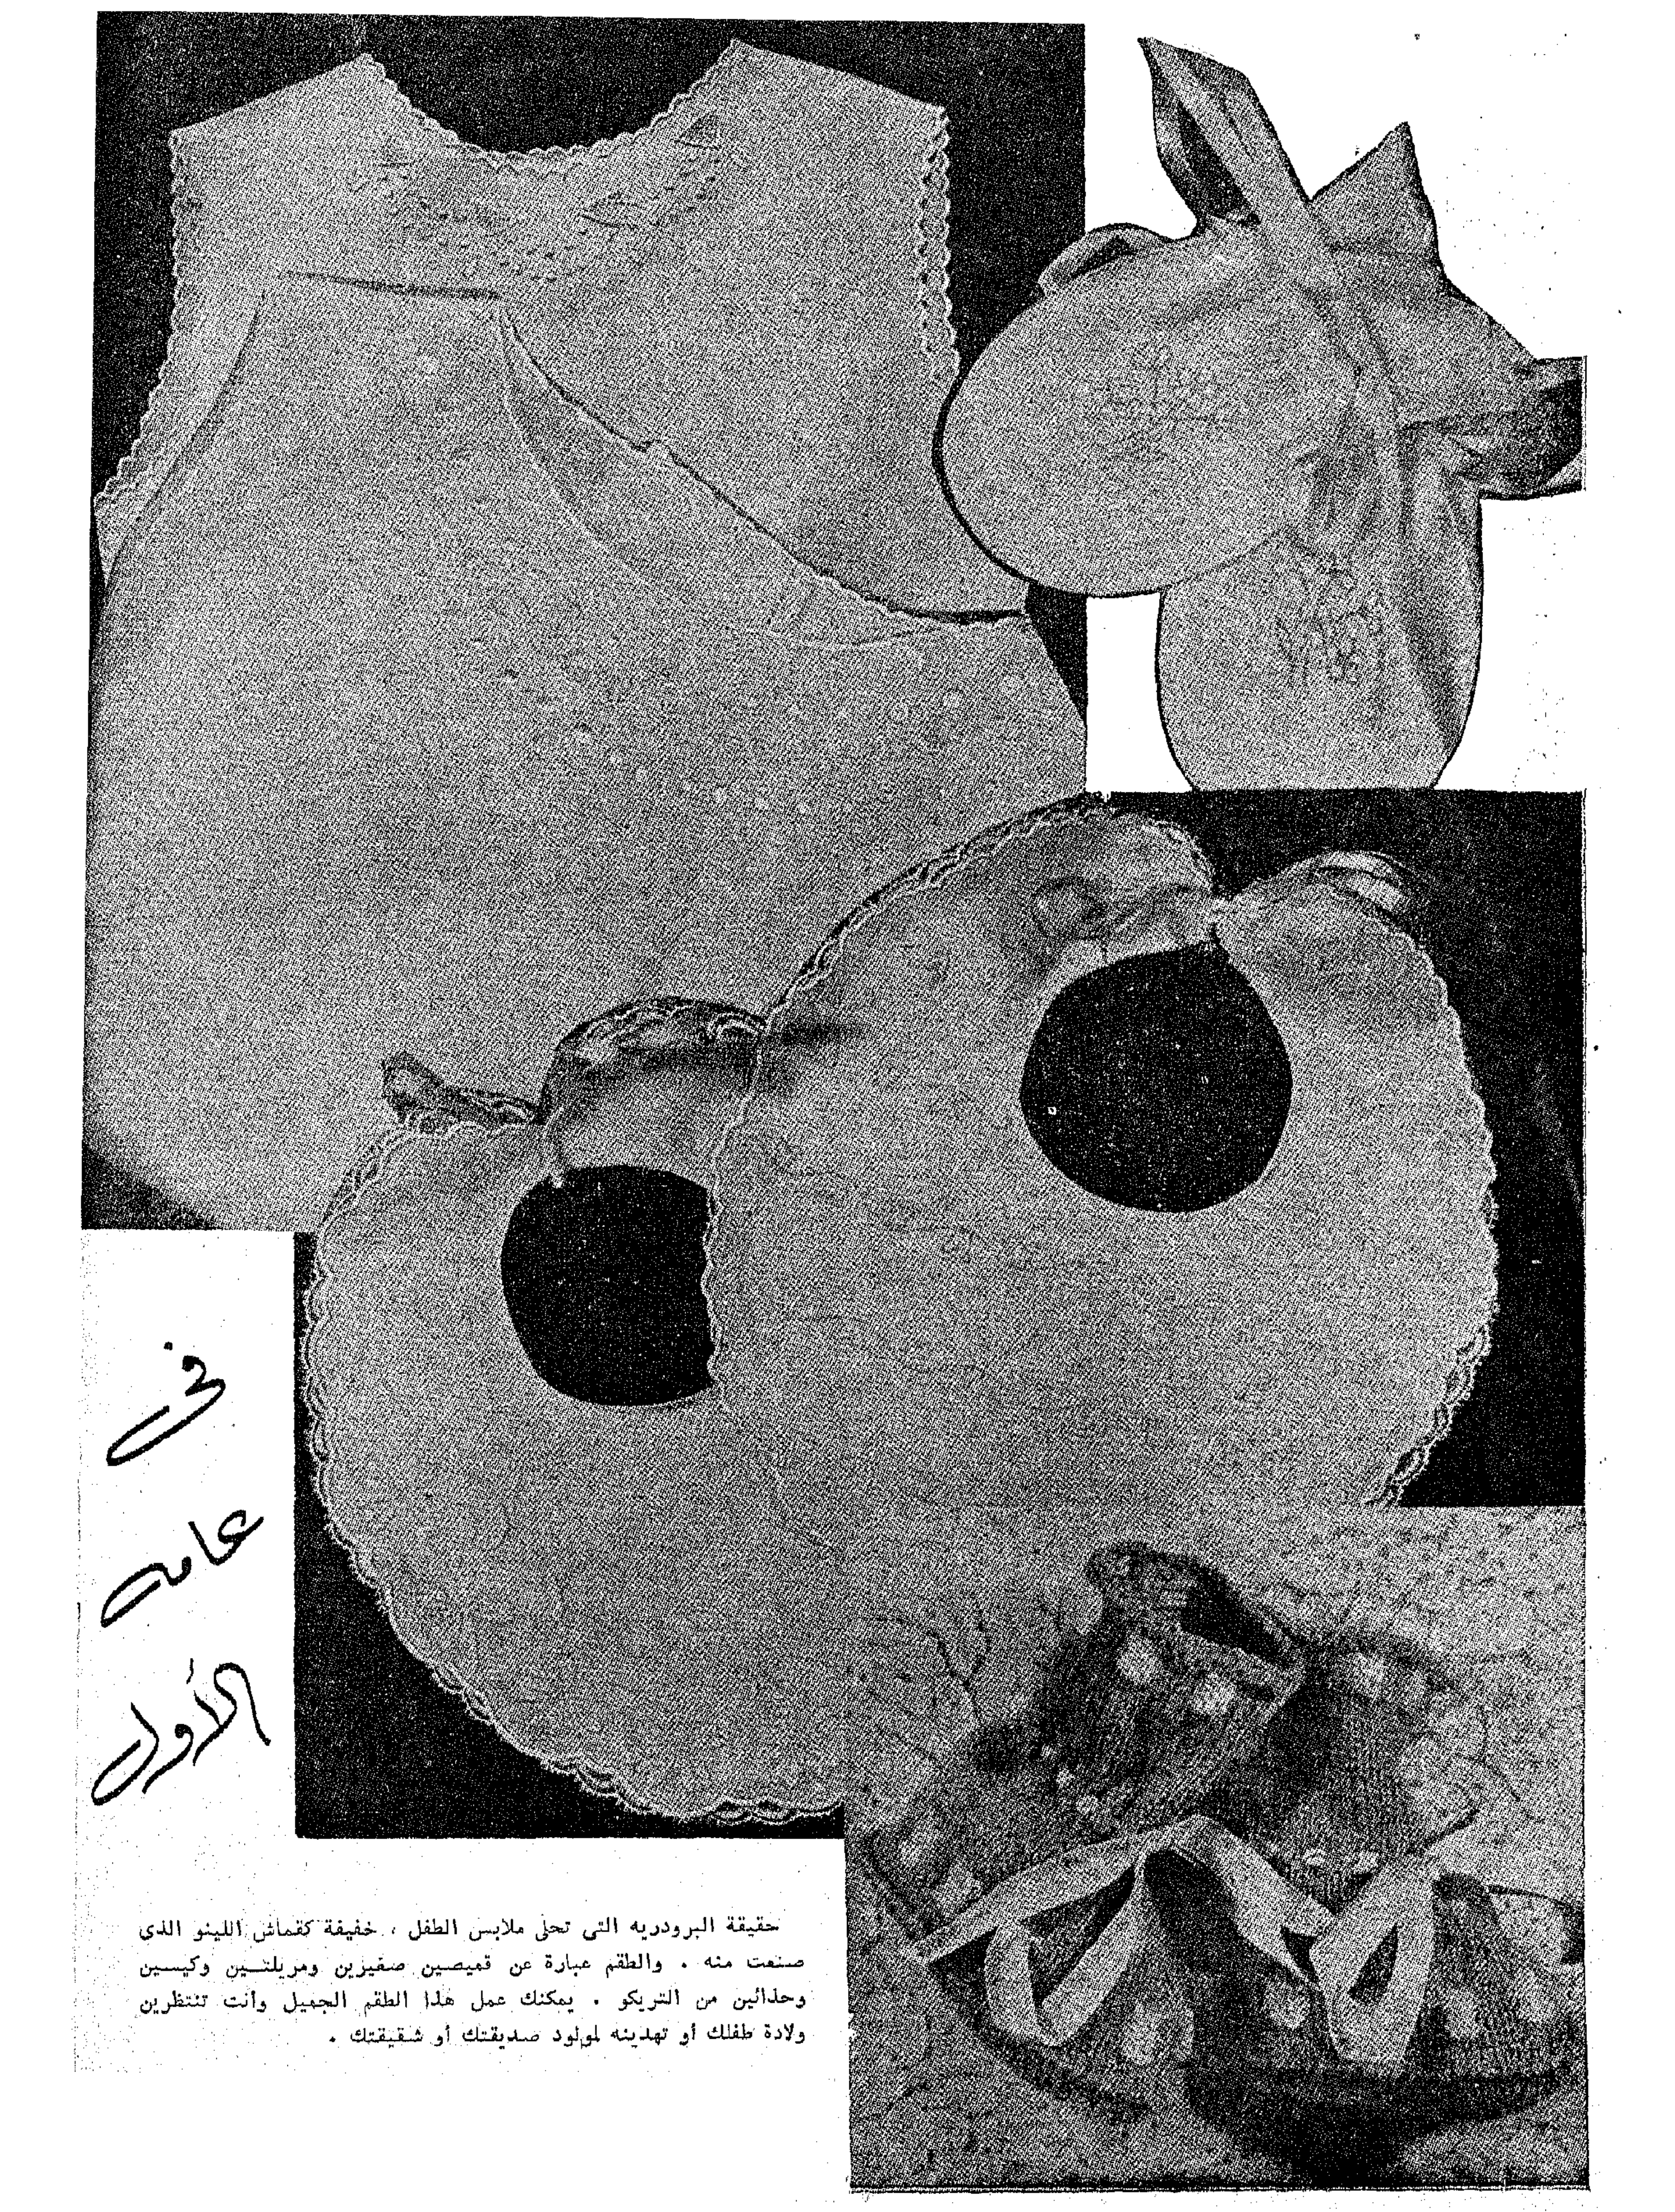 فى
عامه
الأول
حقيقة البرودريه التى تحلى ملابس الطفل ، خفيفة كقماش اللينو الذى
صنعت منه . والطقم عبارة عن قميصين صغيرين ومريلتين وكيسين
وحذائين من التريكو . يمكنك عمل هذا الطقم الجميل وأنت تنتظرين
ولادة طفلك أو تهدينه لمولود صديقتك أو شقيقتك .